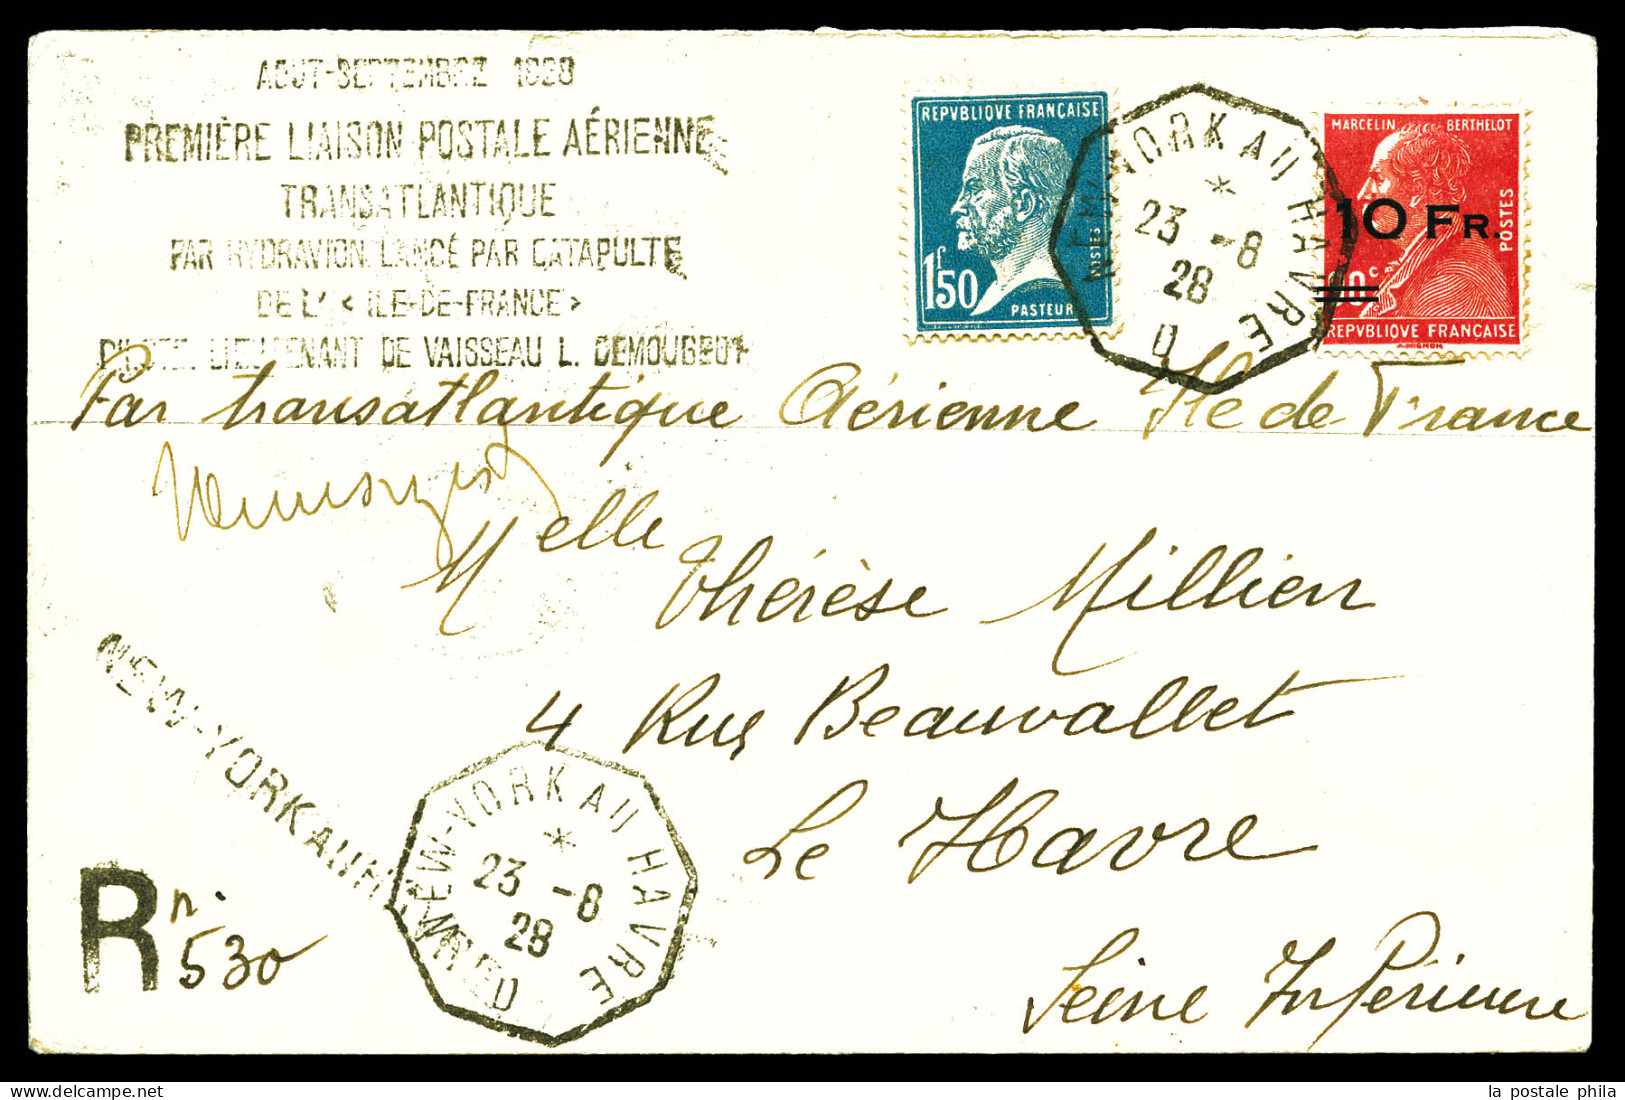 AOUT-SEPTEMBRE 1928
PREMIÈRE LIAISON POSTALE AÉRIENNE
TRANSATLANTIQUE
PAR HYDRAVION LANCÉ PAR CATAPULTE
DE L' < ILE-DE-FRANCE >
PILOTE LIEUTENANT DE VAISSEAU L. DEMOUGEOT
REPVBLIQVE FRANÇAISE
POSTES
1f50
PASTEUR
NEW-YORK AU HAVRE
*
23 -8
28
D
MARCELIN BERTHELOT
POSTES
10 FR.
90c
REPVBLIQVE FRANÇAISE
Par transatlantique Aérienne Ile de France
Demougeot
Melle Thérèse Millien
4 Rue Beauvallet
Le Havre
Seine Inférieure
NEW-YORK AU HAVRE
NEW-YORK AU HAVRE
*
23 -8
28
D
R n. 530
la postale phila